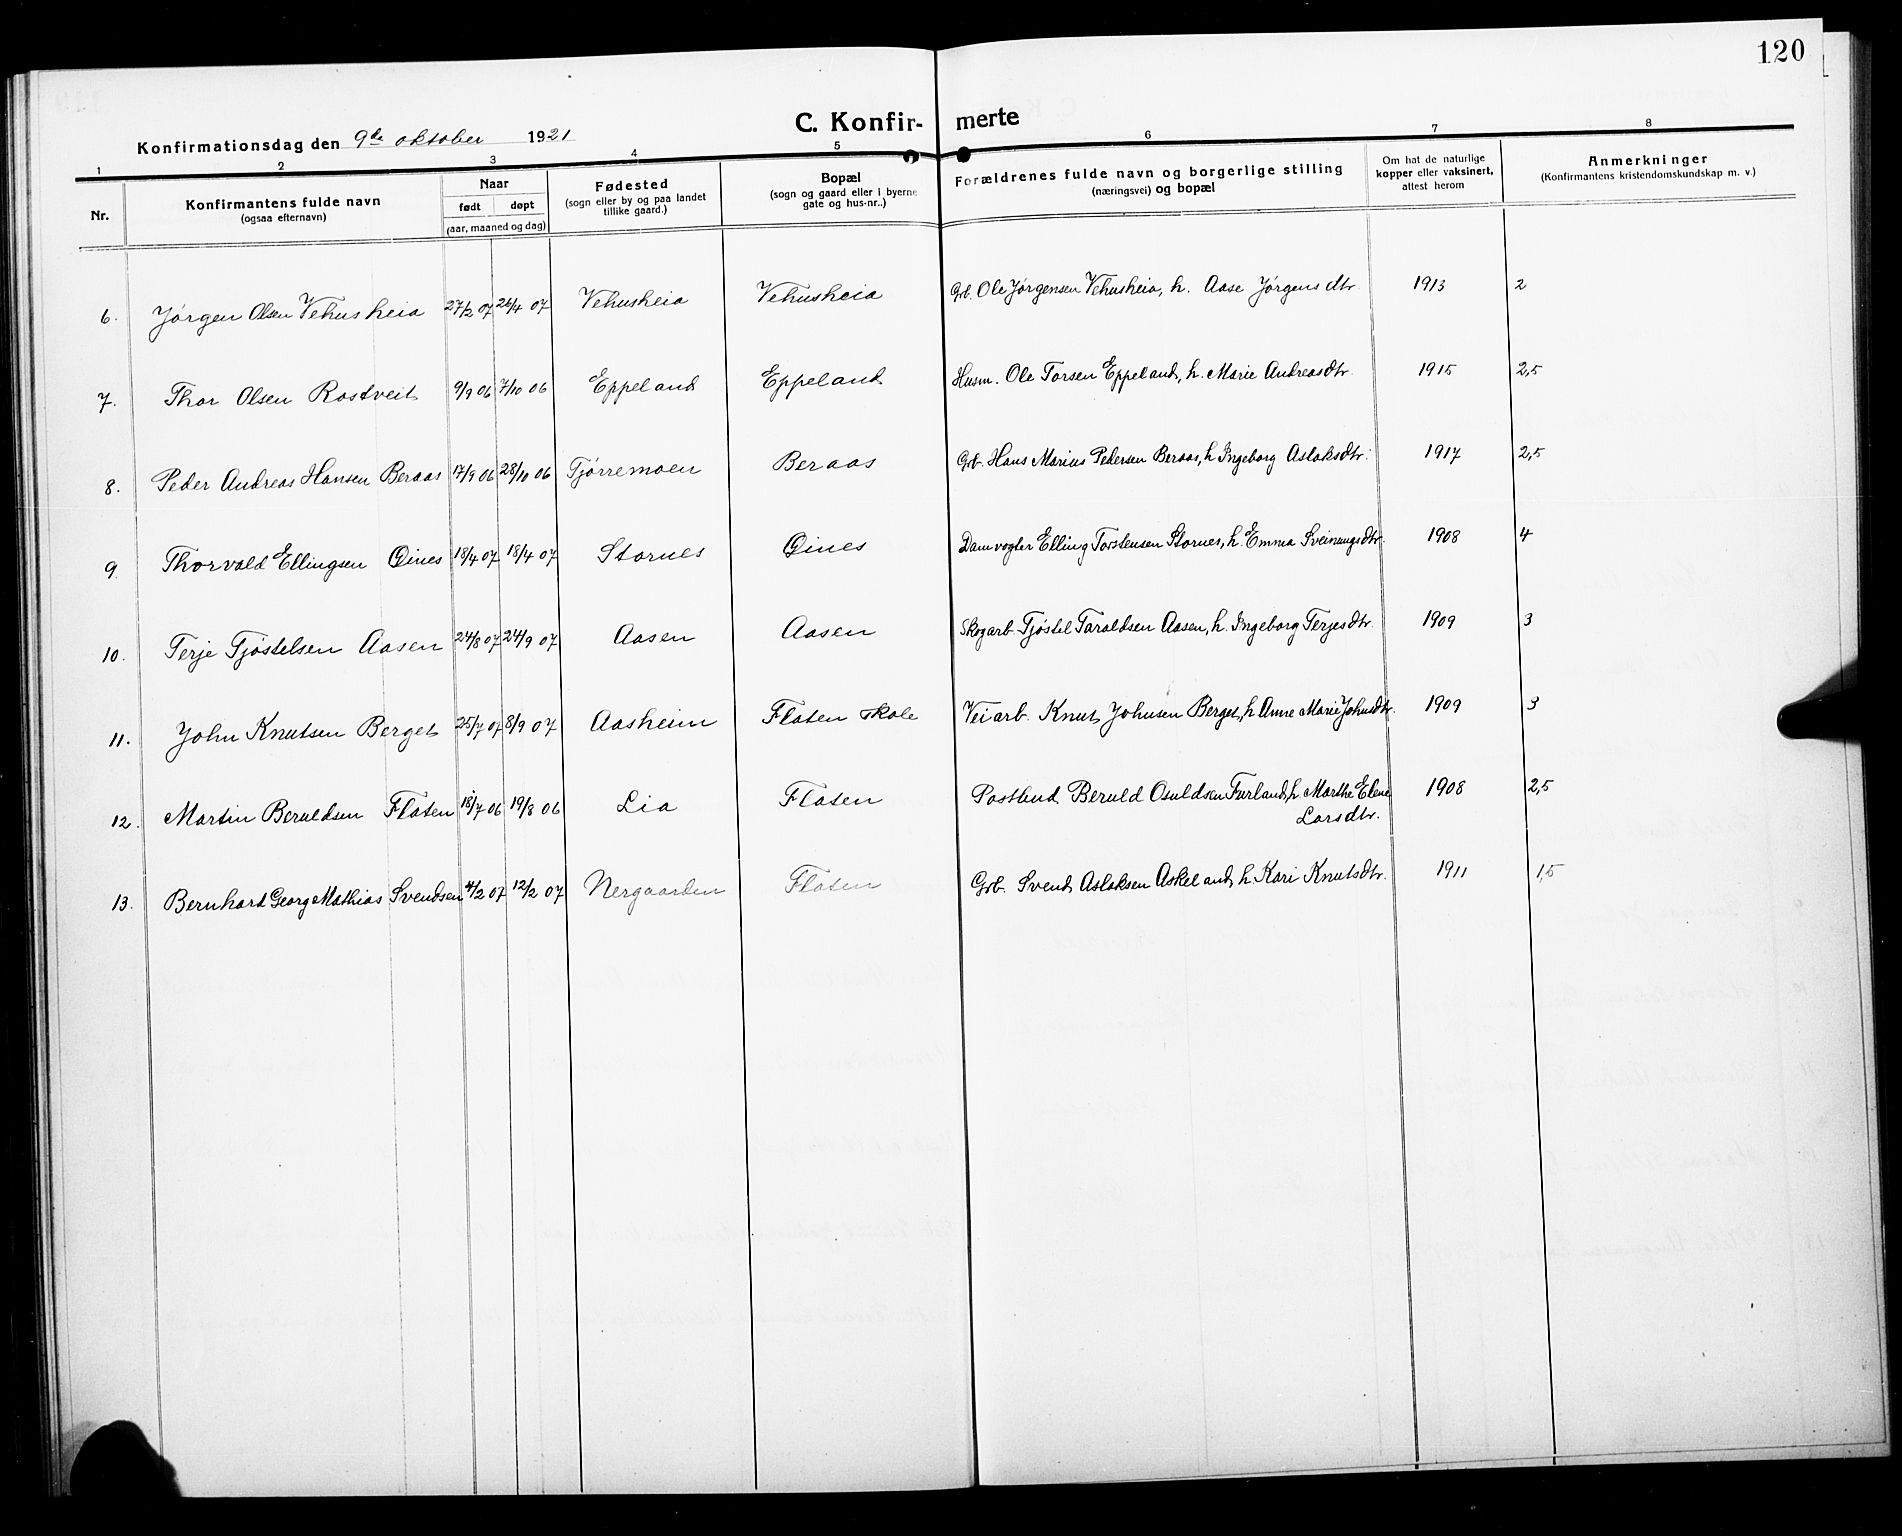 120
C. Konfirmerte
Konfirmationsdag den 9de oktober 1921
1 2 3 4 5 6 7 8
Nr.
Konfirmantens fulde navn
(ogsaa efternavn)
Naar
født døpt
(aar, maaned og dag)
Fødested
(sogn eller by og paa landet
tillike gaard.)
Bopæl
(sogn og gaard eller i byerne
gate og hus-nr..)
Forældrenes fulde navn og borgerlige stilling
(næringsvei) og bopæl
Om hat de naturlige
kopper eller vaksinert,
attest herom
Anmerkninger
(Konfirmantens kristendomskundskap m. v.)
6. Jørgen Olsen Vehusheia 27/2 07 26/4 07 Vehusheia Vehusheia Grb. Ole Jørgensen Vehusheia, h. Aase Jørgensdtr. 1913 2
7. Thor Olsen Rostveit 9/9 06 7/10 06 Eppeland Eppeland Husm. Ole Torsen Eppeland, h. Marie Andreasdtr. 1915 2,5
8. Peder Andreas Hansen Beraas 17/9 06 28/10 06 Tjørremoen Beraas Grb. Hans Marius Pedersen Beraas, h Ingeborg Aslaksdtr. 1917 2,5
9. Thorvald Ellingsen Gines 18/4 07 18/4 07 Stornes Gines Damvogter Elling Torstensen Stornes, h. Emma Sveinungsdtr. 1908 4
10. Terje Tjøstelsen Aasen 24/8 07 24/9 07 Aasen Aasen Skogarb. Tjøstel Taraldsen Aasen, h. Ingeborg Terjesdtr. 1909 3
11. John Knutsen Berget 25/7 07 8/9 07 Aasheim Flaten skole Veiarb. Knut Johnsen Berget, h Anne Marie Johnsdtr. 1909 3
12. Martin Beruldsen Flaten 18/7 06 19/8 06 Lia Flaten Postbud Beruld Osuldsen Furland, h Marthe Elene 1908 2,5
Larsdtr.
13. Bernhard Georg Mathias Svendsen 4/2 07 12/2 07 Nergaarden Flaten Grb. Svend Aslaksen Askeland h. Kari Knutsdtr. 1911 1,5